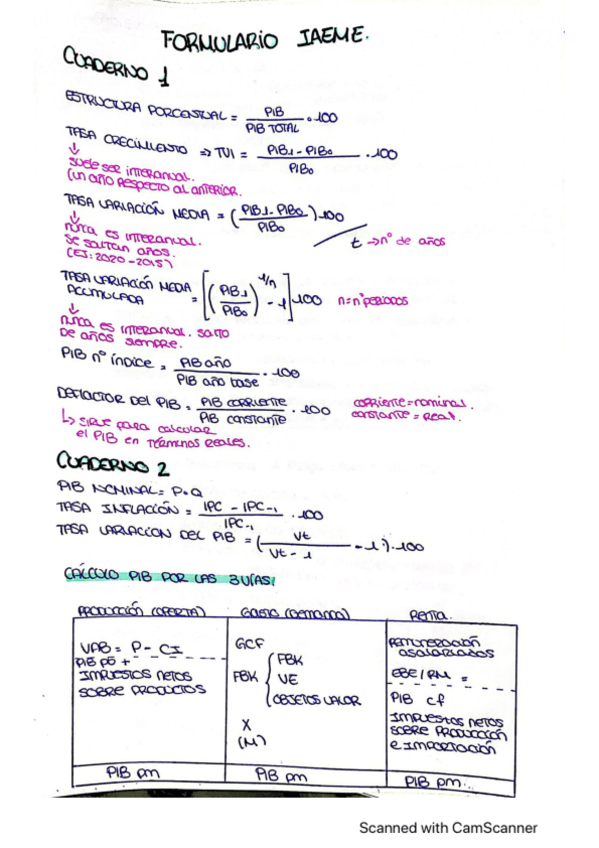 FORMULARIO IAEME.
CUADERNO 1
ESTRUCTURA PORCENTUAL = PIB / PIB TOTAL · 100
TASA CRECIMIENTO => TVI = PIB1 - PIB0 / PIB0 · 100
↓
suele ser interanual.
(un año respecto al anterior.
TASA VARIACIÓN MEDIA = (PIB1 - PIB0 / PIB0) · 100 / t → nº de años
↓
nunca es interanual.
se saltan años.
(EJ: 2020-2015)
TASA VARIACIÓN MEDIA ACUMULADA = [(PIB1 / PIB0)^1/n - 1] · 100 n = nº periodos
↓
nunca es interanual. salto
de años siempre.
PIB nº índice = PIB año / PIB año base · 100
DEFLACTOR DEL PIB = PIB CORRIENTE / PIB CONSTANTE · 100 corriente = nominal.
constante = real.
↳ sirve para calcular
el PIB en términos reales.
CUADERNO 2
PIB NOMINAL = P · Q
TASA INFLACIÓN = IPC - IPC-1 / IPC-1 · 100
TASA VARIACION DEL PIB = (Vt / Vt - 1 - 1) · 100
CÁLCULO PIB POR LAS 3 VÍAS:
PRODUCCIÓN (OFERTA)
VAB = P - CI
PIB pb +
IMPUESTOS NETOS
SOBRE PRODUCTOS
PIB pm
GASTO (DEMANDA)
GCF
FBK { FBK
VE
OBJETOS VALOR
X
(M)
PIB pm
RENTA.
REMUNERACIÓN
ASALARIADOS
EBE / RM =
PIB cf
IMPUESTOS NETOS
SOBRE PRODUCCIÓN
E IMPORTACIÓN
PIB pm.
Scanned with CamScanner